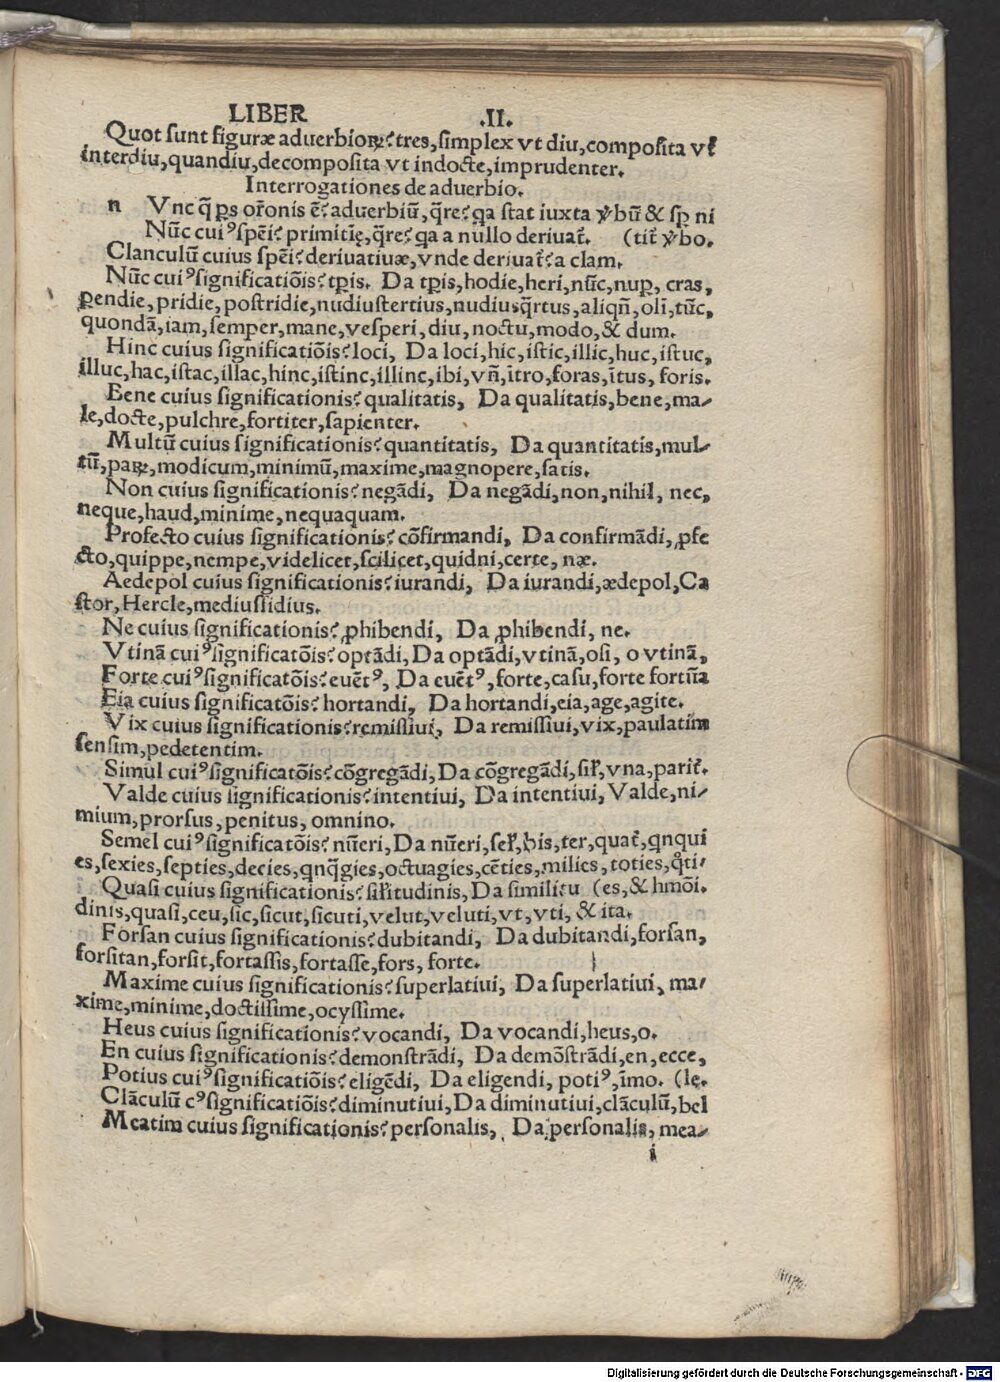 LIBER .II.
Quot sunt figuræ aduerbioꝝ? tres, simplex vt diu, composita vt
interdiu, quandiu, decomposita vt indocte, imprudenter.
Interrogationes de aduerbio.
n Vnc q̃ ps or̃onis ē? aduerbiū, q̃re? qa stat iuxta v̓bū & sp ni
Nūc cuiꝰ spēi? primitię, q̃re? qa a nullo deriuat̃. (tit̃ v̓bo.
Clanculū cuius spēi? deriuatiuæ, vnde deriuat̃? a clam.
Nūc cuiꝰ significatiōis? tꝑis. Da tꝑis, hodie, heri, nūc, nuꝑ, cras,
ꝑendie, pridie, postridie, nudiustertius, nudiusq̃rtus, aliqñ, oli̅, tūc,
quondā, iam, semper, mane, vesperi, diu, noctu, modo, & dum.
Hinc cuius significatiōis? loci, Da loci, hic, istic, illic, huc, istuc,
illuc, hac, istac, illac, hinc, istinc, illinc, ibi, vñ, i̅tro, foras, i̅tus, foris.
Bene cuius significationis? qualitatis, Da qualitatis, bene, ma-
le, docte, pulchre, fortiter, sapienter.
Multū cuius significationis? quantitatis, Da quantitatis, mul-
tū, paꝝ, modicum, minimū, maxime, magnopere, satis.
Non cuius significationis? negādi, Da negādi, non, nihil, nec,
neque, haud, minime, nequaquam.
Profecto cuius significationis? cōfirmandi, Da confirmādi, ꝓfe
cto, quippe, nempe, videlicet, scilicet, quidni, certe, næ.
Aedepol cuius significationis? iurandi, Da iurandi, ædepol, Ca
stor, Hercle, mediussidius.
Ne cuius significationis? ꝓhibendi, Da ꝓhibendi, ne.
Vtinā cuiꝰ significatōis? optādi, Da optādi, vtinā, osi, o vtinā,
Forte cuiꝰ significatōis? euētꝰ, Da euētꝰ, forte, casu, forte fortūa
Eia cuius significatōis? hortandi, Da hortandi, eia, age, agite.
Vix cuius significationis? remissiui, Da remissiui, vix, paulatim
sensim, pedetentim.
Simul cuiꝰ significatōis? cōgregādi, Da cōgregādi, sil̃, vna, parit̃.
Valde cuius significationis? intentiui, Da intentiui, Valde, ni-
mium, prorsus, penitus, omnino.
Semel cuiꝰ significatōis? nūeri, Da nūeri, sel̃, bis, ter, quat̃, qnqui
es, sexies, septies, decies, qnq̃gies, octuagies, cēties, milies, toties, q̊ti-
Quasi cuius significationis? sil̃itudinis, Da similitu (es, & hmōi.
dinis, quasi, ceu, sic, sicut, sicuti, velut, veluti, vt, vti, & ita.
Forsan cuius significationis? dubitandi, Da dubitandi, forsan,
forsitan, forsit, fortassis, fortasse, fors, forte.
Maxime cuius significationis? superlatiui, Da superlatiui, ma-
xime, minime, doctissime, ocyssime.
Heus cuius significationis? vocandi, Da vocandi, heus, o.
En cuius significationis? demonstrādi, Da demōstrādi, en, ecce,
Potius cuiꝰ significatiōis? eligēdi, Da eligendi, potiꝰ, i̅mo. (le.
Clāculū cꝰ significatiōis? diminutiui, Da diminutiui, clāculū, bel
Meatim cuius significationis? personalis, Da personalis, mea-
i
Digitalisierung gefördert durch die Deutsche Forschungsgemeinschaft - DFG